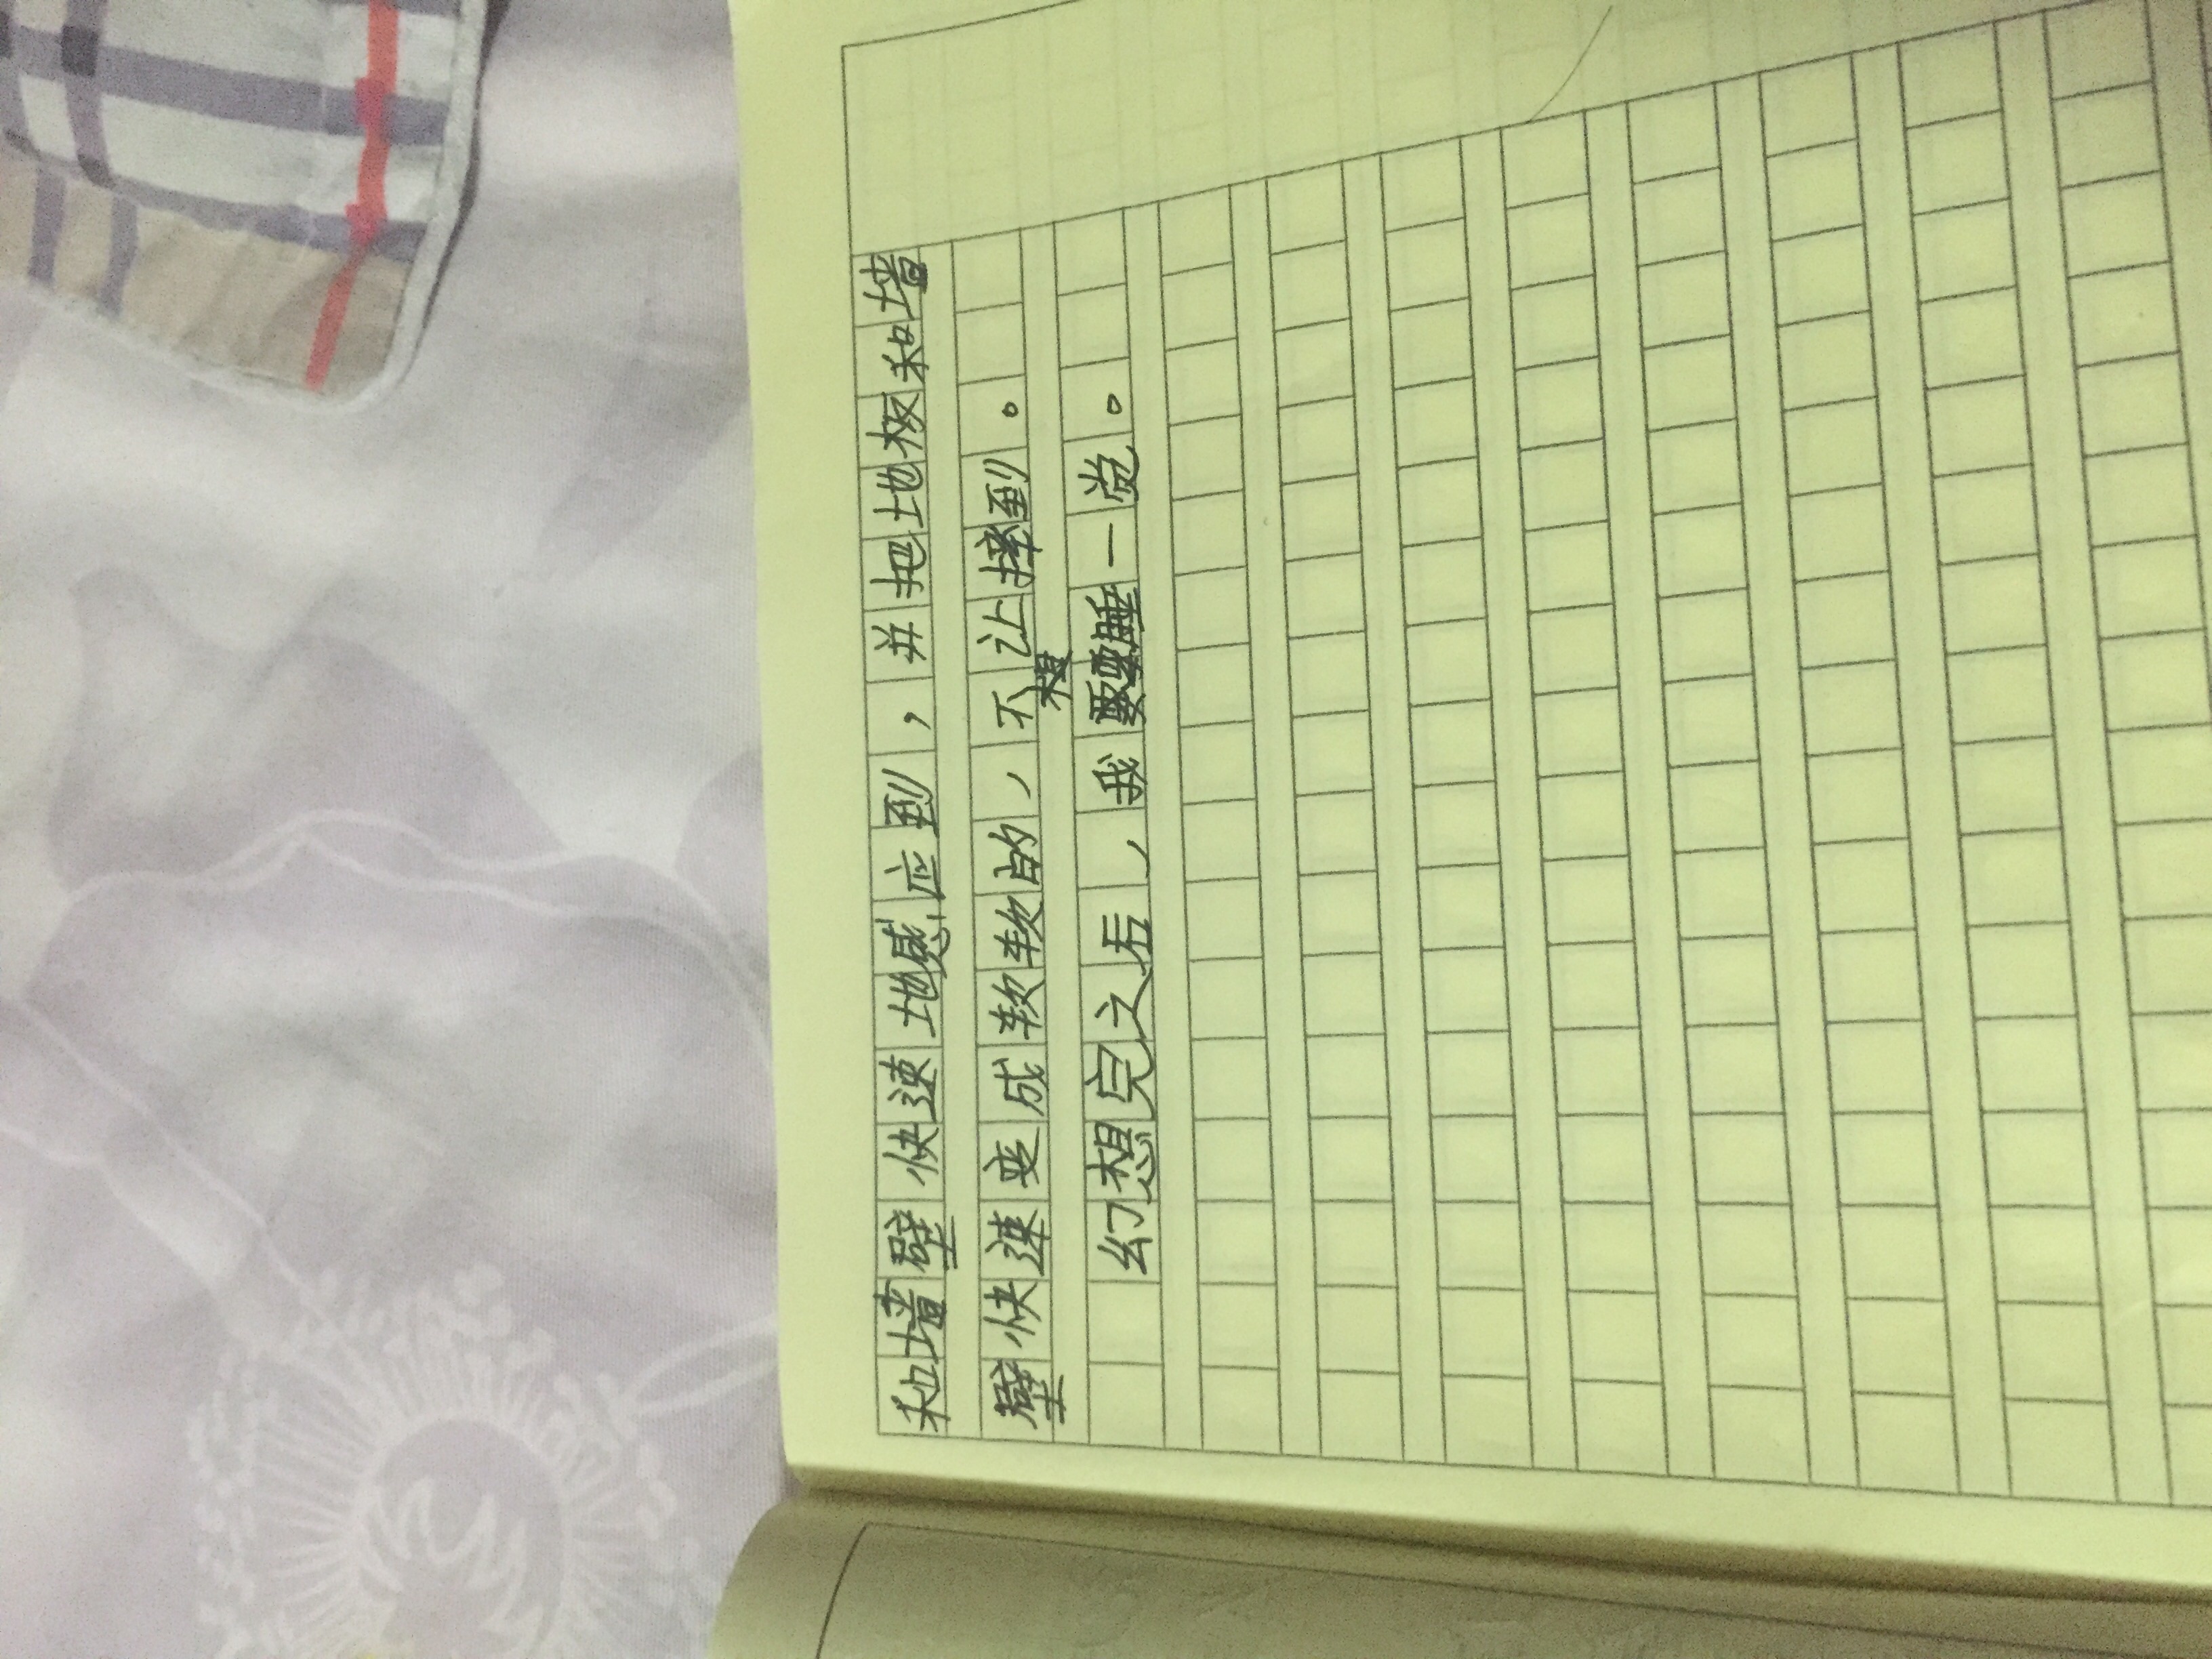 和墙壁快速地感应到，并把地板和墙
壁快速变成软软的，不让摔到。
幻想完之后，我想睡一觉。